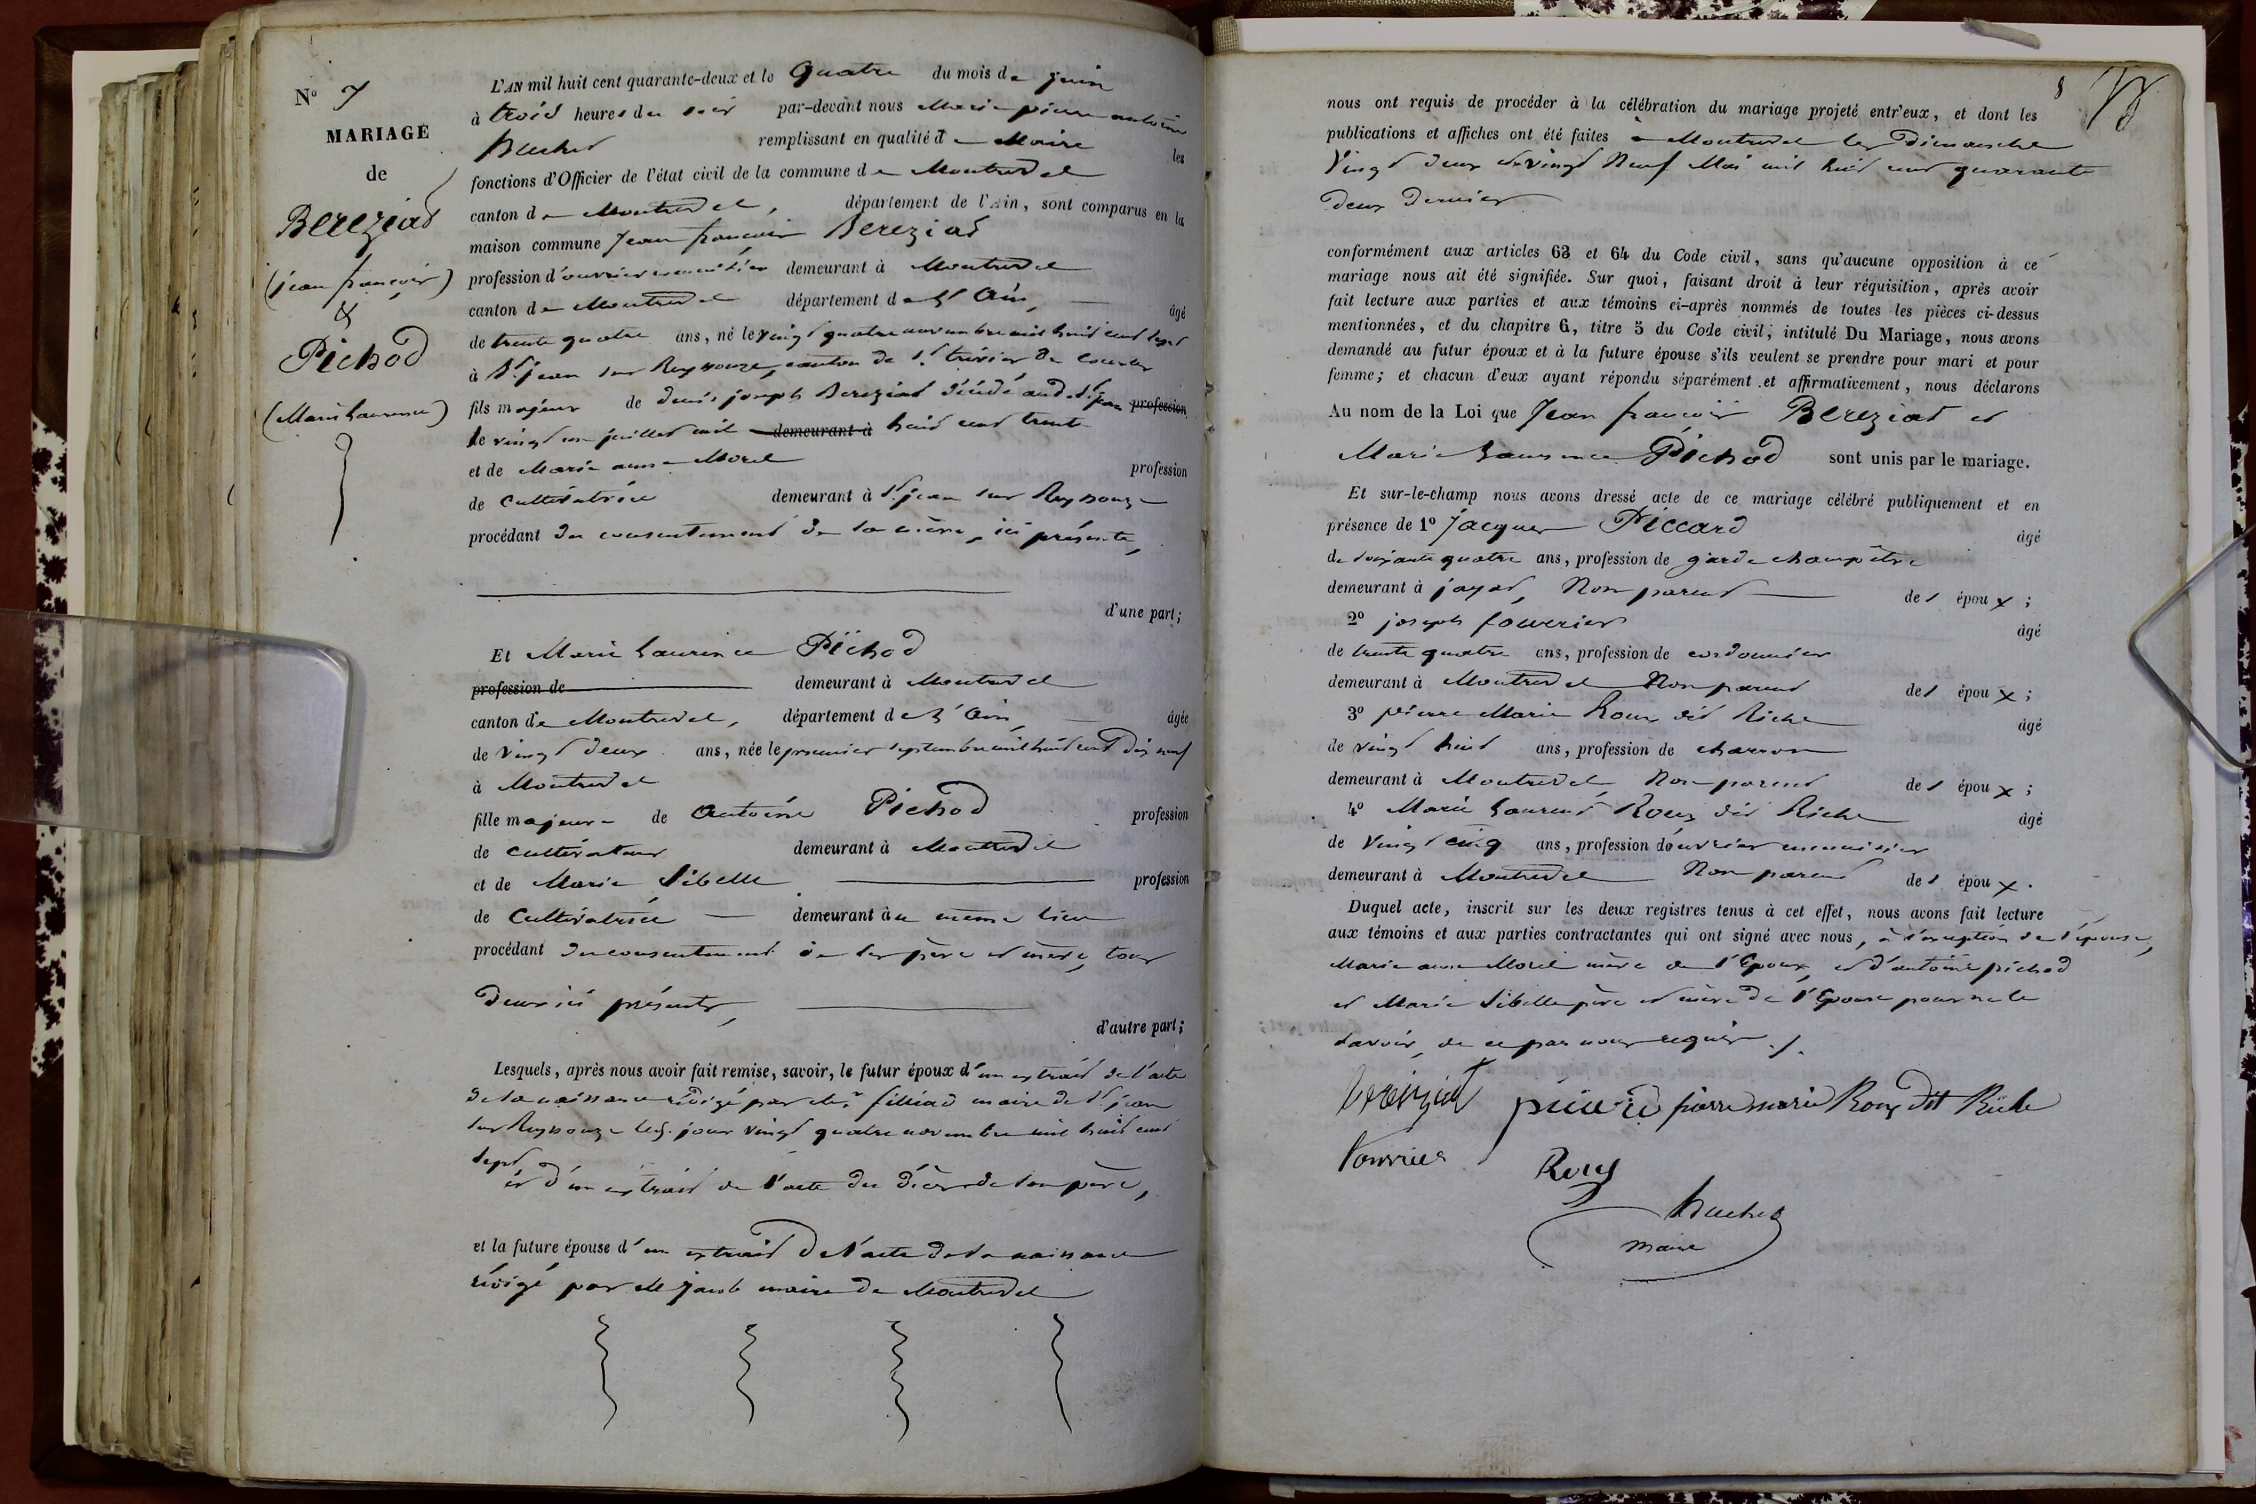 N° 7
MARIAGE
de
Bereziat
(jean françois)
&
Pichod
(Marie Laurence)
L'AN mil huit cent quarante-deux et le quatre du mois de juin
à trois heures du soir par-devant nous Marie pierre antoine
Huchet remplissant en qualité de Maire les
fonctions d'Officier de l'état civil de la commune de Montrevel
canton de Montrevel, département de l'Ain, sont comparus en la
maison commune Jean françois Bereziat
profession d'ouvrier menuisier demeurant à Montrevel
canton de Montrevel département de l'Ain, âgé
de trente quatre ans, né le vingt quatre novembre mil huit cent sept
à St. jean sur Reyssouze, canton de St. trivier de Courtes
fils majeur de denis joseph Bereziat décédé aud. St. jean profession
le vingt un juillet mil demeurant à huit cent trente
et de Marie anne Morel profession
de Cultivatrice demeurant à St. jean sur Reyssouze
procédant du consentement de sa mère, ici présente,
d'une part;
Et Marie Laurence Pichod
profession de demeurant à Montrevel
canton de Montrevel, département de l'Ain, âgée
de vingt deux ans, née le premier septembre mil huit cent dix neuf
à Montrevel
fille majeure de Antoine Pichod profession
de cultivateur demeurant à Montrevel
et de Marie Sibelle profession
de Cultivatrice demeurant au même lieu
procédant du consentement de ses père et mère, tous
deux ici présents,
d'autre part;
Lesquels, après nous avoir fait remise, savoir, le futur époux d'un extrait de l'acte
de sa naissance rédigé par Mr. filliod maire de St. jean
sur Reyssouze led. jour vingt quatre novembre mil huit cent
sept
et d'un extrait de l'acte du décès de son père,
et la future épouse d'un extrait de l'acte de sa naissance
rédigé par M Jacob maire de Montrevel
8
nous ont requis de procéder à la célébration du mariage projeté entr'eux, et dont les
publications et affiches ont été faites à Montrevel les Dimanche
Vingt deux et vingt Neuf Mai mil huit cent quarante
deux dernier
conformément aux articles 63 et 64 du Code civil, sans qu'aucune opposition à ce
mariage nous ait été signifiée. Sur quoi, faisant droit à leur réquisition, après avoir
fait lecture aux parties et aux témoins ci-après nommés de toutes les pièces ci-dessus
mentionnées, et du chapitre 6, titre 5 du Code civil, intitulé Du Mariage, nous avons
demandé au futur époux et à la future épouse s'ils veulent se prendre pour mari et pour
femme; et chacun d'eux ayant répondu séparément et affirmativement, nous déclarons
Au nom de la Loi que Jean françois Bereziat et
Marie Laurence Pichod sont unis par le mariage.
Et sur-le-champ nous avons dressé acte de ce mariage célébré publiquement et en
présence de 1° Jacques Piccard âgé
de soixante quatre ans, profession de garde champêtre
demeurant à jayat, Non parent des époux;
2° joseph fourrier âgé
de trente quatre ans, profession de cordonnier
demeurant à Montrevel Non parent des époux;
3° pierre Marie Roux dit Riche âgé
de vingt huit ans, profession de charron
demeurant à Montrevel, Non parent des époux;
4° Marie Laurent Roux dit Riche âgé
de Vingt cinq ans, profession d'ouvrier menuisier
demeurant à Montrevel Non parent des époux.
Duquel acte, inscrit sur les deux registres tenus à cet effet, nous avons fait lecture
aux témoins et aux parties contractantes qui ont signé avec nous, à l'exception de l'épouse,
Marie anne Morel mère de l'Epoux, et d'antoine pichod
et Marie Sibelle père et mère de l'Epouse pour ne le
savoir, de ce par nous requis ./.
bereziat piccard pierre marie Roux dit Riche
fourrier Roux
Huchet
maire